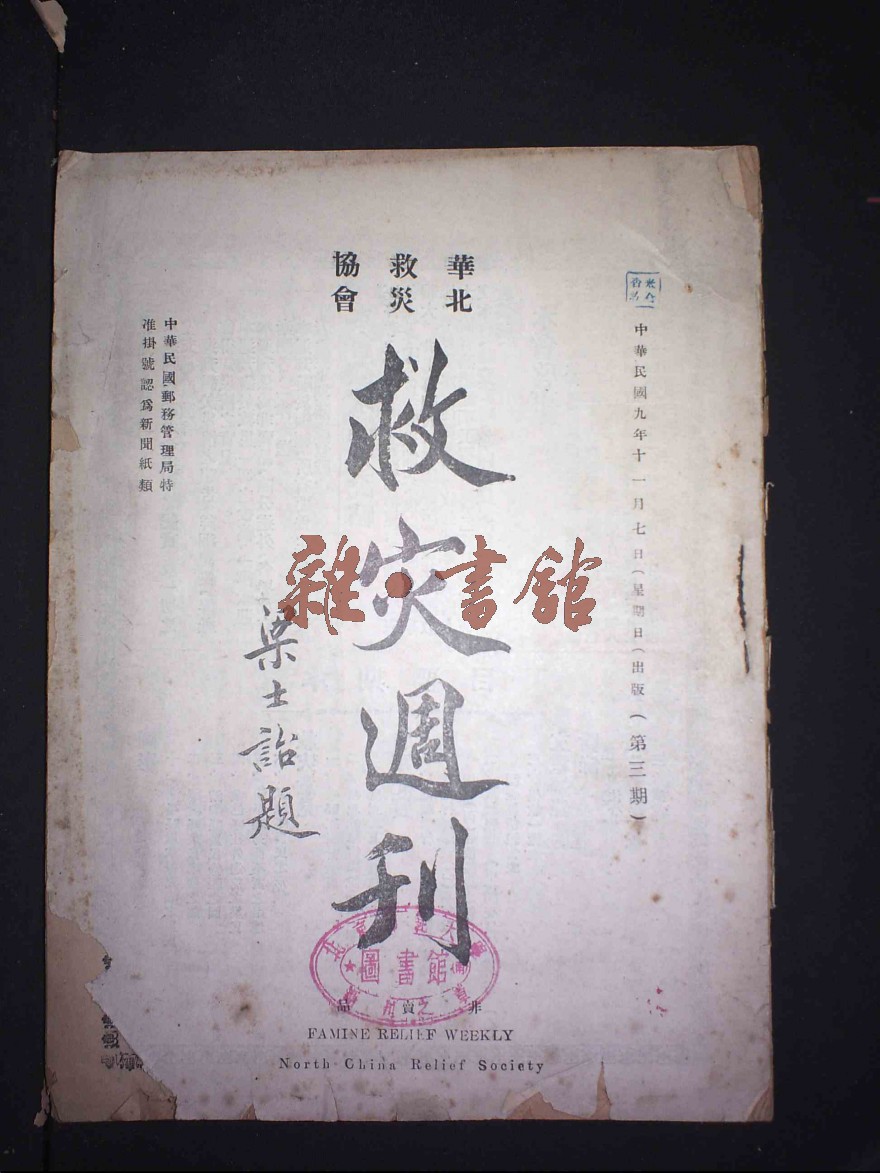 中華民國九年十一月七日(星期日)出版(第三期)
華北
救災
協會
救灾週刊
梁士詒題
中華民國郵務管理局特
准掛號認爲新聞紙類
雜·書館
圖書館
非賣品
FAMINE RELIEF WEEKLY
North China Relief Society